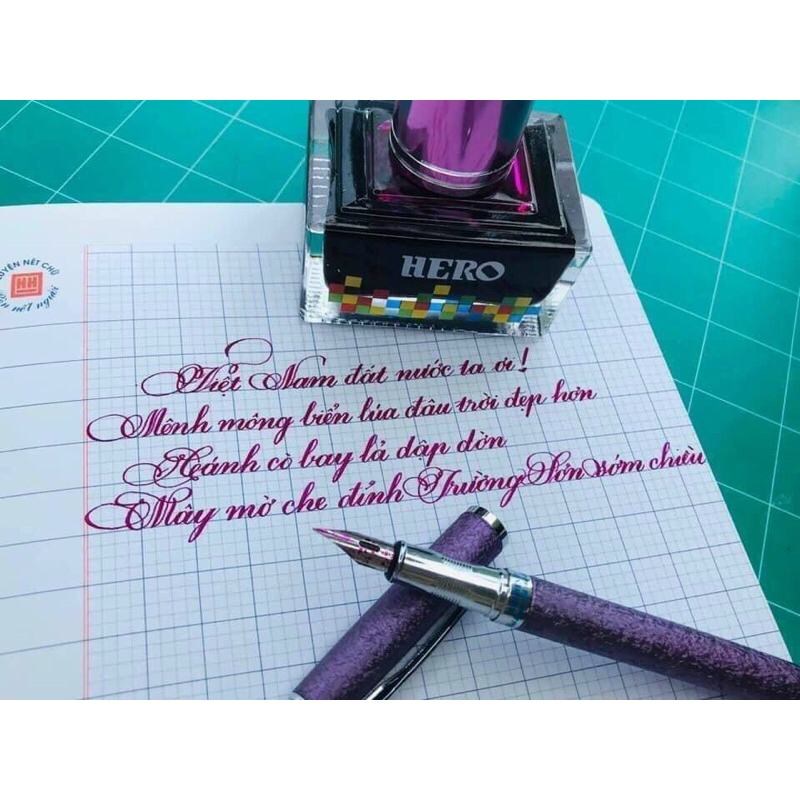 HERO
LUYỆN NÉT CHỮ
rèn nết người
Việt Nam đất nước ta ơi!
Mênh mông biển lúa đâu trời đẹp hơn
Cánh cò bay lả dập dờn
Mây mờ che đỉnh Trường Sơn sớm chiều